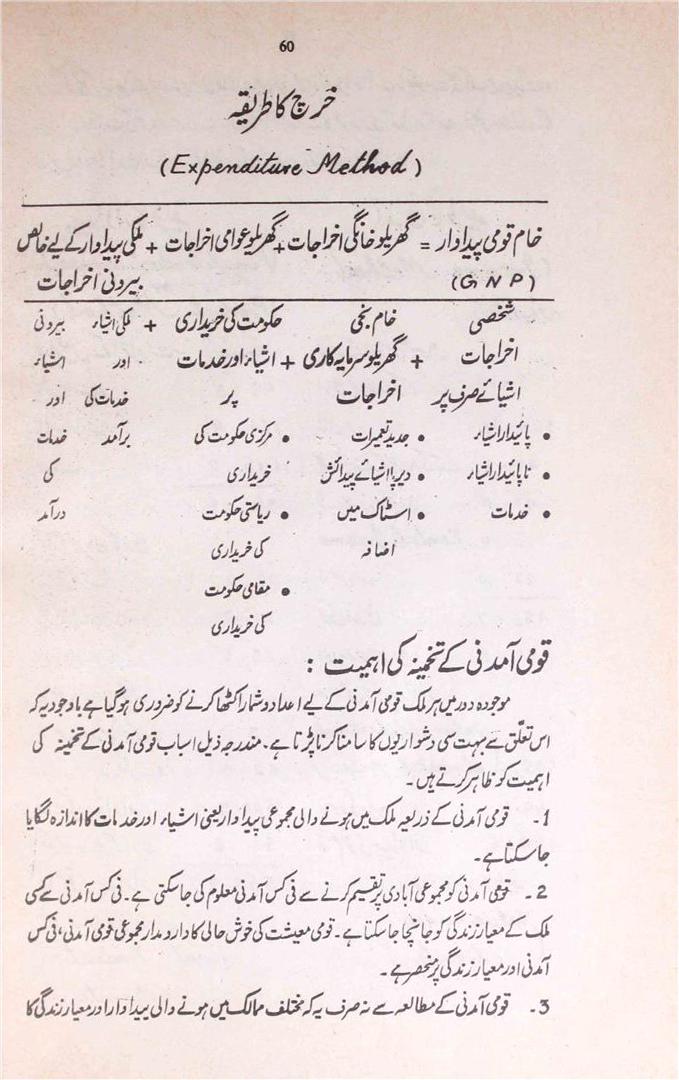 60
خرچ کا طریقہ
(Expenditure Method)
خام قومی پیداوار = گھریلو خانگی اخراجات + گھریلو عوامی اخراجات + ملکی پیداوار کے لیے خالص
(GNP) بیرونی اخراجات
شخصی خام نجی حکومت کی خریداری + ملکی اشیاء بیرونی
اخراجات + گھریلو سرمایہ کاری + اشیاء اور خدمات اور اشیاء
اشیائے صرف پر اخراجات پر خدمات کی اور
• پائیدار اشیاء • جدید تعمیرات • مرکزی حکومت کی برآمد خدمات
• ناپائیدار اشیاء • دیرپا اشیائے پیدائش خریداری کی
• خدمات • اسٹاک میں • ریاستی حکومت درآمد
اضافہ کی خریداری
• مقامی حکومت
کی خریداری
قومی آمدنی کے تخمینہ کی اہمیت :
موجودہ دور میں ہر ملک قومی آمدنی کے لیے اعداد و شمار اکٹھا کرنے کو ضروری ہوگیا ہے باوجودیہ کہ
اس تعلق سے بہت سی دشواریوں کا سامنا کرنا پڑتا ہے۔ مندرجہ ذیل اسباب قومی آمدنی کے تخمینہ کی
اہمیت کو ظاہر کرتے ہیں۔
1۔ قومی آمدنی کے ذریعہ ملک میں ہونے والی مجموعی پیداوار یعنی اشیاء اور خدمات کا اندازہ لگایا
جاسکتا ہے۔
2۔ قومی آمدنی کو مجموعی آبادی پر تقسیم کرنے سے فی کس آمدنی معلوم کی جاسکتی ہے۔ فی کس آمدنی سے کسی
ملک کے معیار زندگی کو جانچا جاسکتا ہے۔ قومی معیشت کی خوش حالی کا دارومدار مجموعی قومی آمدنی، فی کس
آمدنی اور معیار زندگی پر منحصر ہے۔
3۔ قومی آمدنی کے مطالعہ سے نہ صرف یہ کہ مختلف ممالک میں ہونے والی پیداوار اور معیار زندگی کا